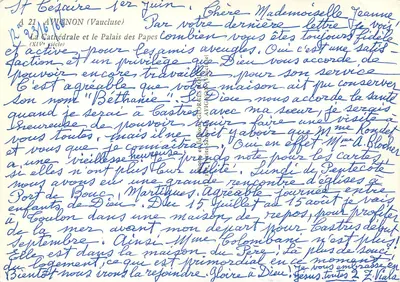 St Césaire 1er Juin. Chère Mademoiselle Jeanne
A 21 AVIGNON (Vaucluse)
Cathédrale et le Palais des Papes
(XIVe siècle)
Par votre dernière lettre, je vois
combien vous êtes toujours fidèle
et active, pour les amis aveugles. Oui c'est une satis
faction et un privilège que Dieu vous accorde de
pouvoir encore travailler pour son service
C'est agréable que votre maison ait pu conserver
son nom "Béthanie". Si Dieu nous accorde la santé
quand je serai à Castres avec ma sœur, je serais
heureuse de pouvoir vous faire une visite à
vous toutes. Mais il ne doit y avoir que Mme
et vous que je connaîtrai. Oui en effet Mme A.
a une vieillesse heureuse. Je prends note pour les cartes
si elles n'ont plus leur utilité. Lundi de Pentecôte
nous avons eu une grande rencontre d'églises à
Port de Bouc, Martigues, agréable journée entre
enfants de Dieu. Du 15 juillet au 15 août je vais
à Toulon dans une maison de repos, pour profiter
de la mer, avant mon départ pour Castres début
septembre. Ainsi Mme Colombani n'y est plus!
Elle est dans la maison du Père! Plus de souci
du logement, ce qui est primordial en ce moment
Bientôt nous irons la rejoindre. Gloire à Dieu! Je vous embrasse en
Jésus, toutes 2 Z. Viala